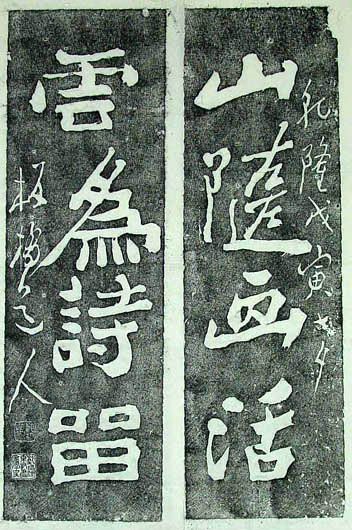 乾隆戊寅七夕
山隨画活
雲為詩留
板橋道人